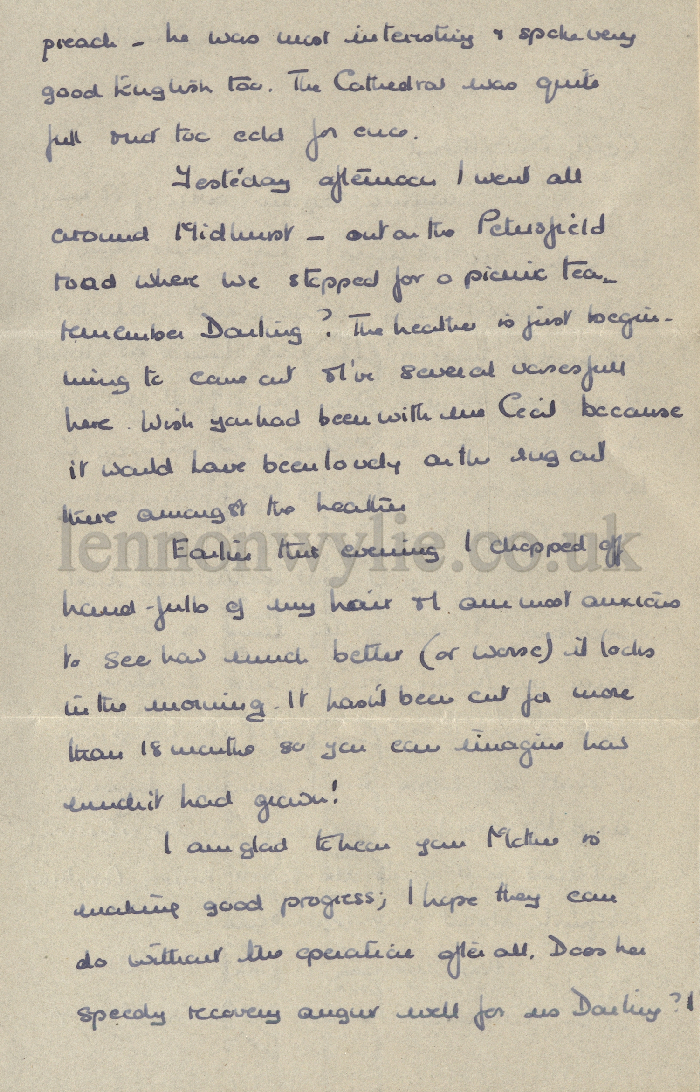 preach - he was most interesting & spoke very
good English too. The Cathedral was quite
full and too cold for once.
Yesterday afternoon I went all
around Midhurst - out on the Petersfield
road where we stopped for a picnic tea -
remember Darling? The heather is just begin-
ning to come out & I've several vases full
here. Wish you had been with me Cecil because
it would have been lovely on the rug out
there amongst the heather
lennonwylie.co.uk
Earlier this evening I chopped off
hand-fulls of my hair & I am most anxious
to see how much better (or worse) it looks
in the morning. It hasn't been cut for more
than 18 months so you can imagine how
much it had grown!
I am glad to hear your Mother is
making good progress; I hope they can
do without the operation after all. Does her
speedy recovery augur well for us Darling?!